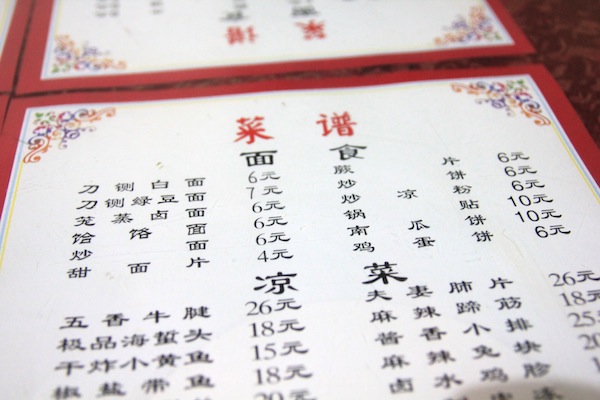 菜谱
面食
刀铡白面 6元 蕨片 6元
刀铡绿豆面 7元 炒饼 6元
蒸卤面 6元 炒凉粉 6元
饸饹面 6元 锅贴 10元
炒面 6元 南瓜饼 10元
甜面片 4元 鸡蛋饼 6元
凉菜
五香牛腱 26元 夫妻肺片 26元
极品海蜇头 18元 麻辣蹄筋 18元
干炸小黄鱼 15元 酱香小排 25
椒盐带鱼 18元 麻辣兔块
20元 卤水鸡胗